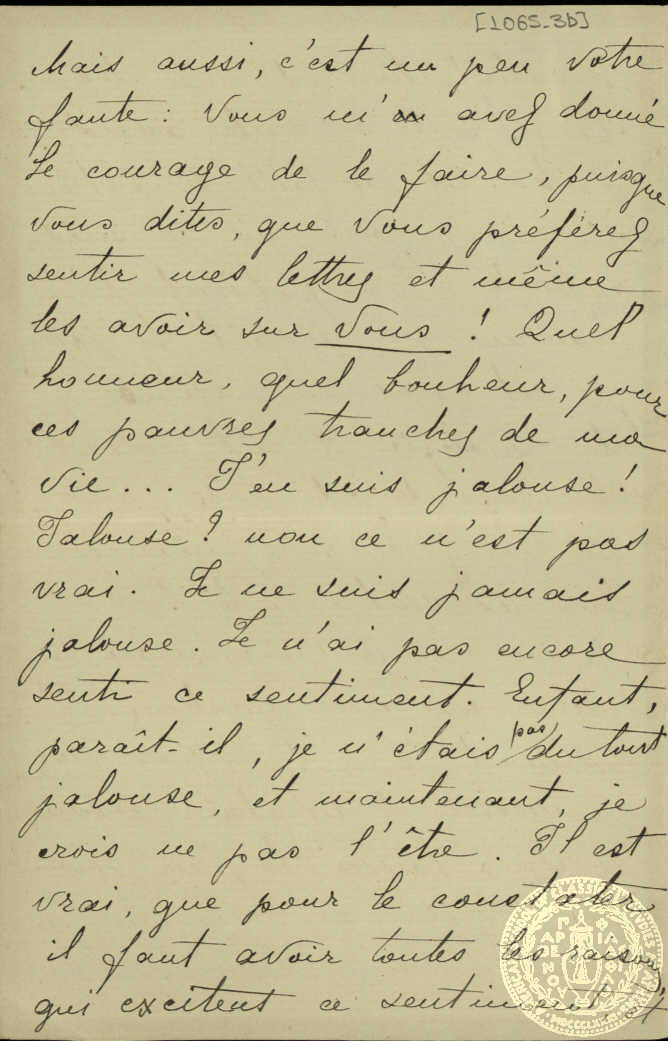 [1065-3b]
Mais aussi, c'est un peu votre
faute : Vous m'en avez donné
le courage de le faire, puisque
vous dites, que vous préférez
sentir mes lettres et même
les avoir sur vous ! Quel
honneur, quel bonheur, pour
ces pauvres tranches de ma
vie... J'en suis jalouse !
Jalouse ? non ce n'est pas
vrai. Je ne suis jamais
jalouse. Je n'ai pas encore
senti ce sentiment. Enfant,
paraît-il, je n'étais pas du tout
jalouse, et maintenant, je
crois ne pas l'être. Il est
vrai, que pour le constater
il faut avoir toutes les raisons,
qui excitent ce sentiment, et